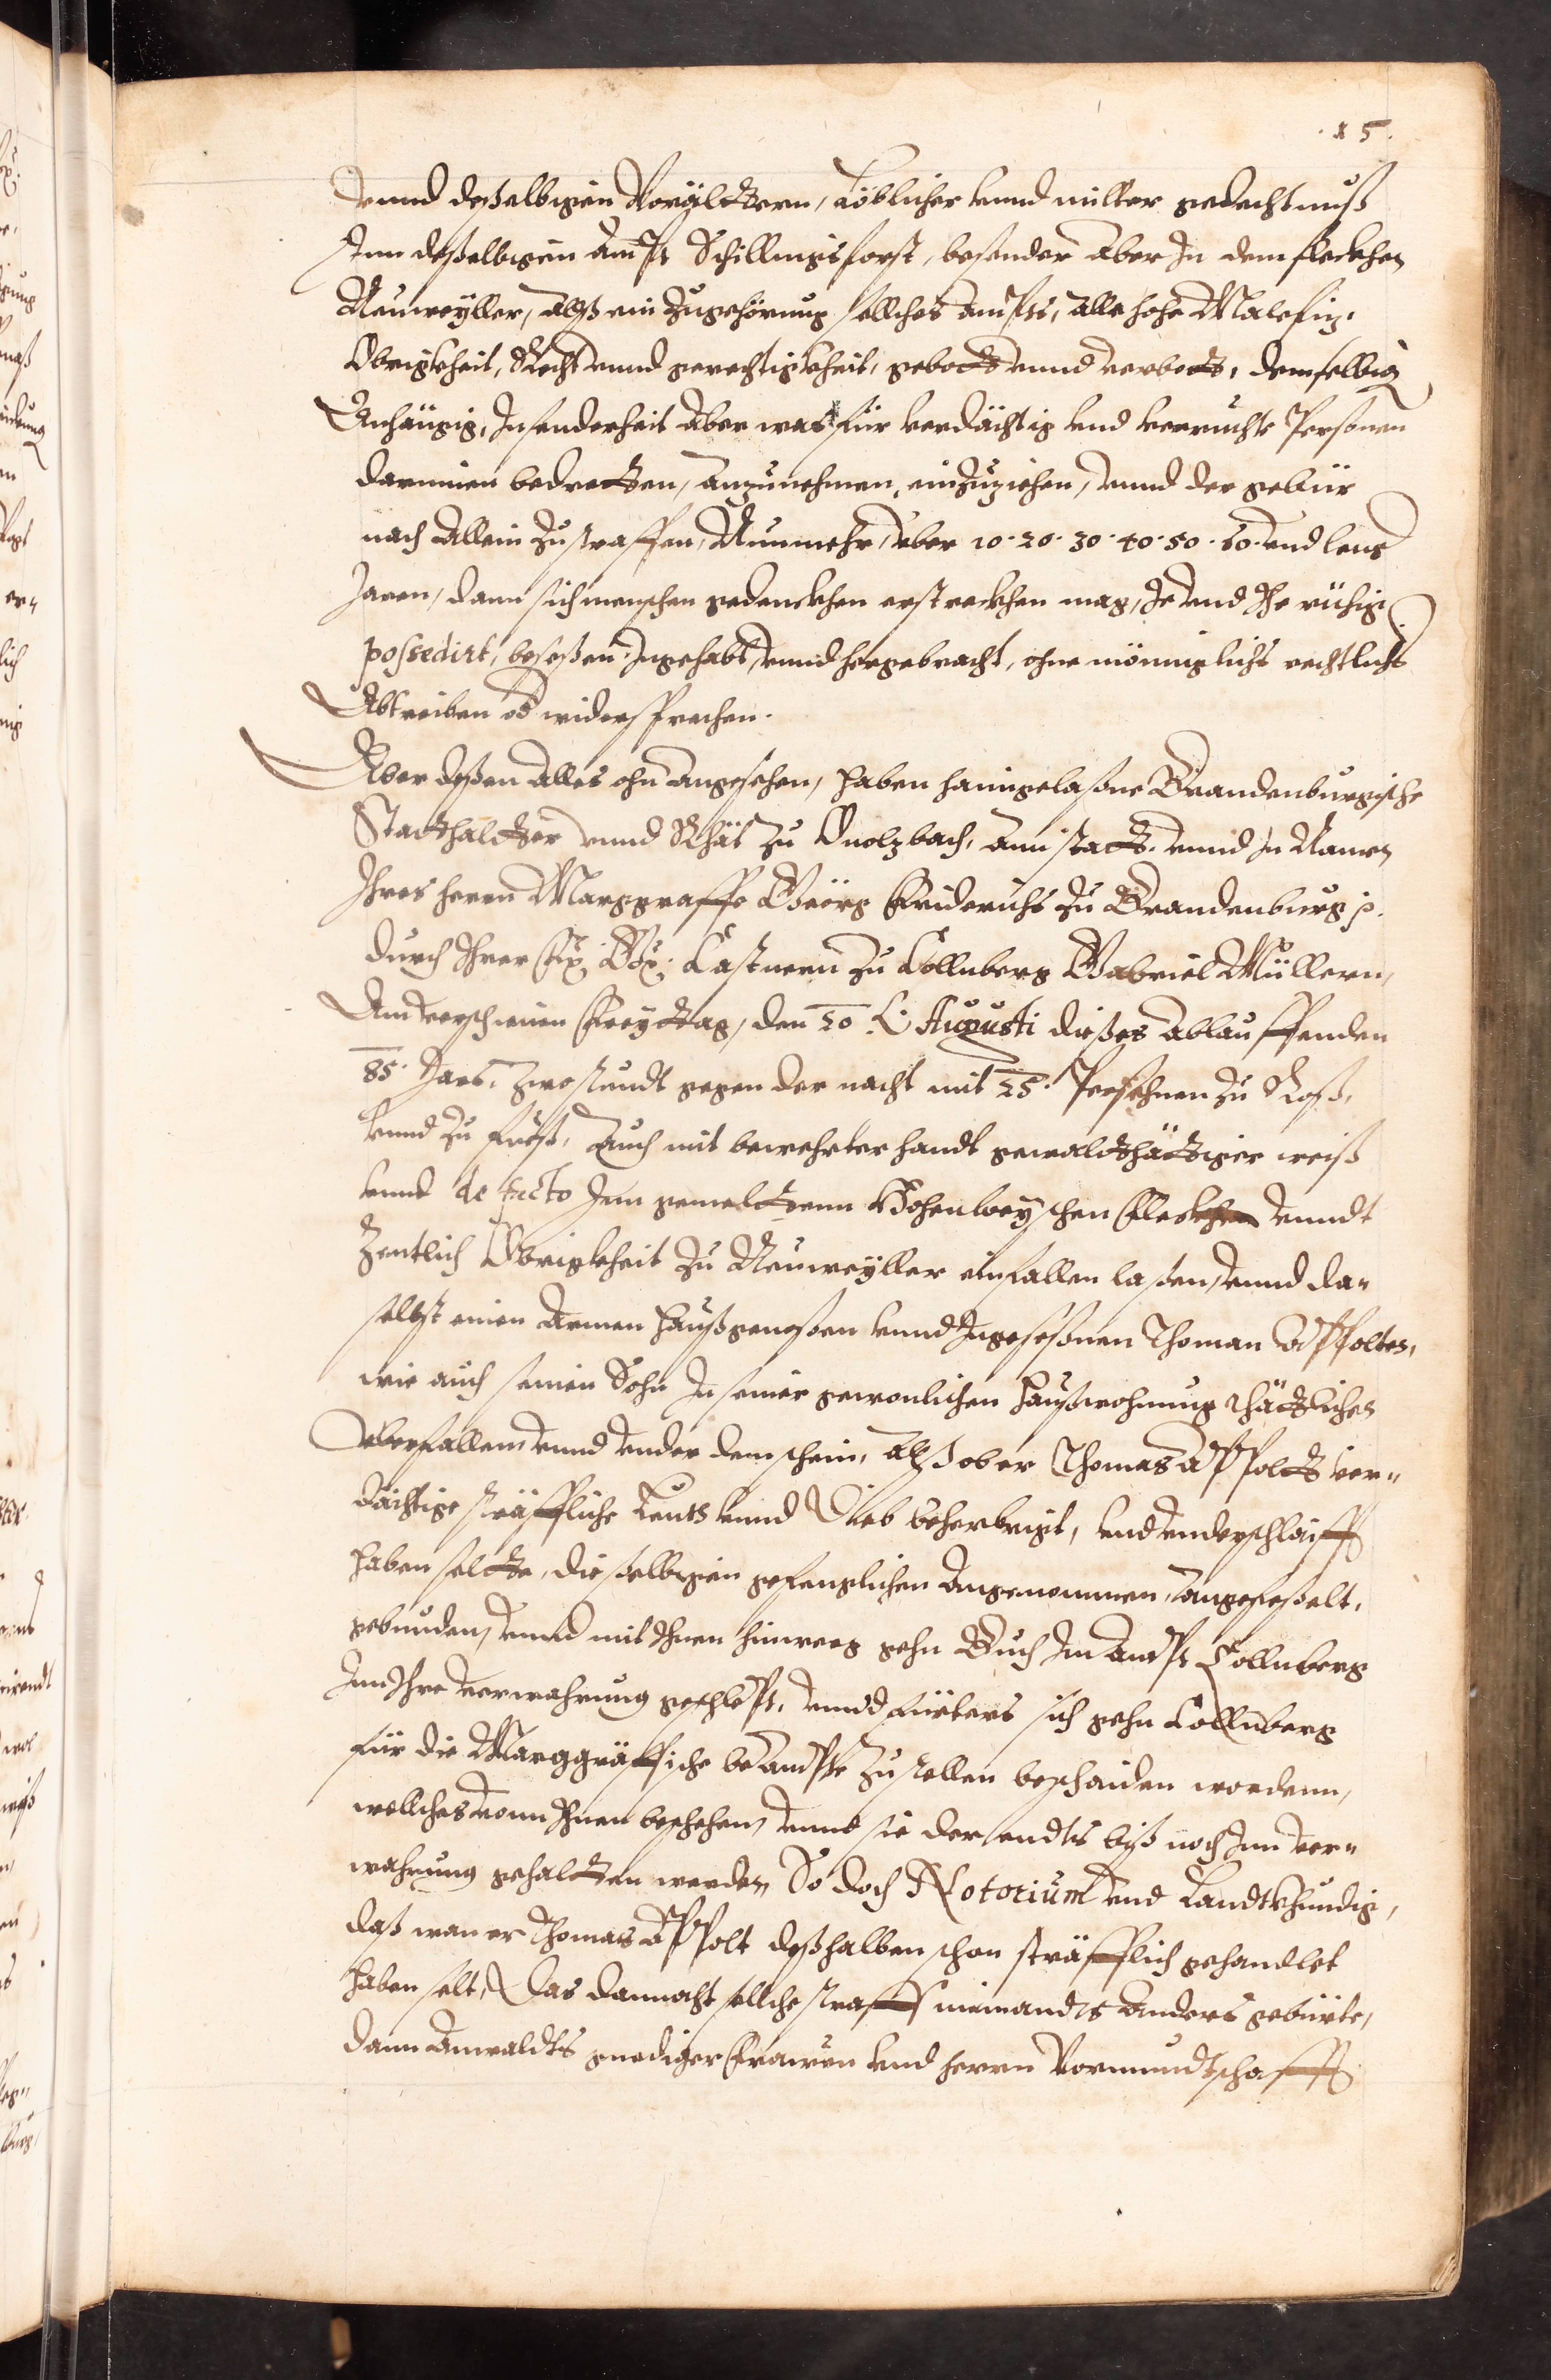 15.
vnnd deßelbigen Voreltern, Löblicher vnnd milter gedechtnuß
Inn deßelbigen Ampt Schillingsforst, besonder aber In dem fleckhen
Neuweyller, Alß ein Zugehörung sollches Ampts, alle hohe Malefiz,
Obrigkheit, Recht vnnd gerechtigkheit, gebott vnnd verbott, demselbigen
Anhängig, Insonderheit aber was für verdächtig vnd verruchte Personen
darinnen bedretten, anzunehmen, einzuziehen, vnnd der gebür
nach Allein zustraffen, Nunmehr vber 10. 20. 30. 40. 50. 60. vnd lenger
Jaren, dann sich menschen gedenckhen erstreckhen mag, Je vnd Ihe rühig
possedirt, beseßen Ingehabt, vnnd hergebracht, ohne mönnigliches rechtlichs
Abtreiben od widersprechen.
Aber deßen Alles ohn angesehen, haben haimgelaßne Brandenburgische
Statthaltter vnnd Rhät zu Onolzbach, ann statt, vnnd In Namen
Ihres herrn Marggraffe Georg Friderichs zu Brandenburg p.
durch Ihrer Fr. Gn. Castnern zu Collnberg Gabriel Müllern,
Am verschinen Freyttag, den 20 Augusti dießes ablauffenden
85. Jars, zwo stundt gegen der nacht mit 25. Persohnen zu Roß,
vnnd zu fueß, Auch mit bewehrter handt gewaltthättiger weiß
vnnd de facto Inn gemeltten Hohenloeyschen Fleckhen vnndt
Zentlich Obrigkheit zu Neuweyller einfallen laßen, vnnd da-
selbst einen Armen Haußgenoßen vnnd Ingeseßnen Thoman Appolten,
wie auch seinen Sohn In seiner gewonlichen Haußwohnung thättlichen
Vberfallen, vnnd vnder dem schein, Alß ob er Thomas Appoltt ver-
dächtige sträffliche Leuth vnnd Dieb beherbrigt, vnd vnderschlaifft
haben soltte, dieselbigen gefenglichen Angenommen, angefeßelt,
gebunden, vnnd mit Ihnen hinweg gehn Buch Im Ampt Collnberg
Inn Ihre verwahrung geschlept, vnnd fürters sich gehn Collnberg
für die Marggräffische beampte zustellen beschaiden wordenn,
wellches vonn Ihnen beschehen, vnnd sie der endts biß noch Inn ver-
wahrung gehaltten werden, So doch Notorium vnd Landtkhundig,
daß wan er Thomas Appolt deßhalben schon sträfflich gehandlet
haben solt, Das dannocht sollche straff niemandts Anders gebürte,
dann Anwaldts gnediger Frawen vnd herrn Vormundtschafft